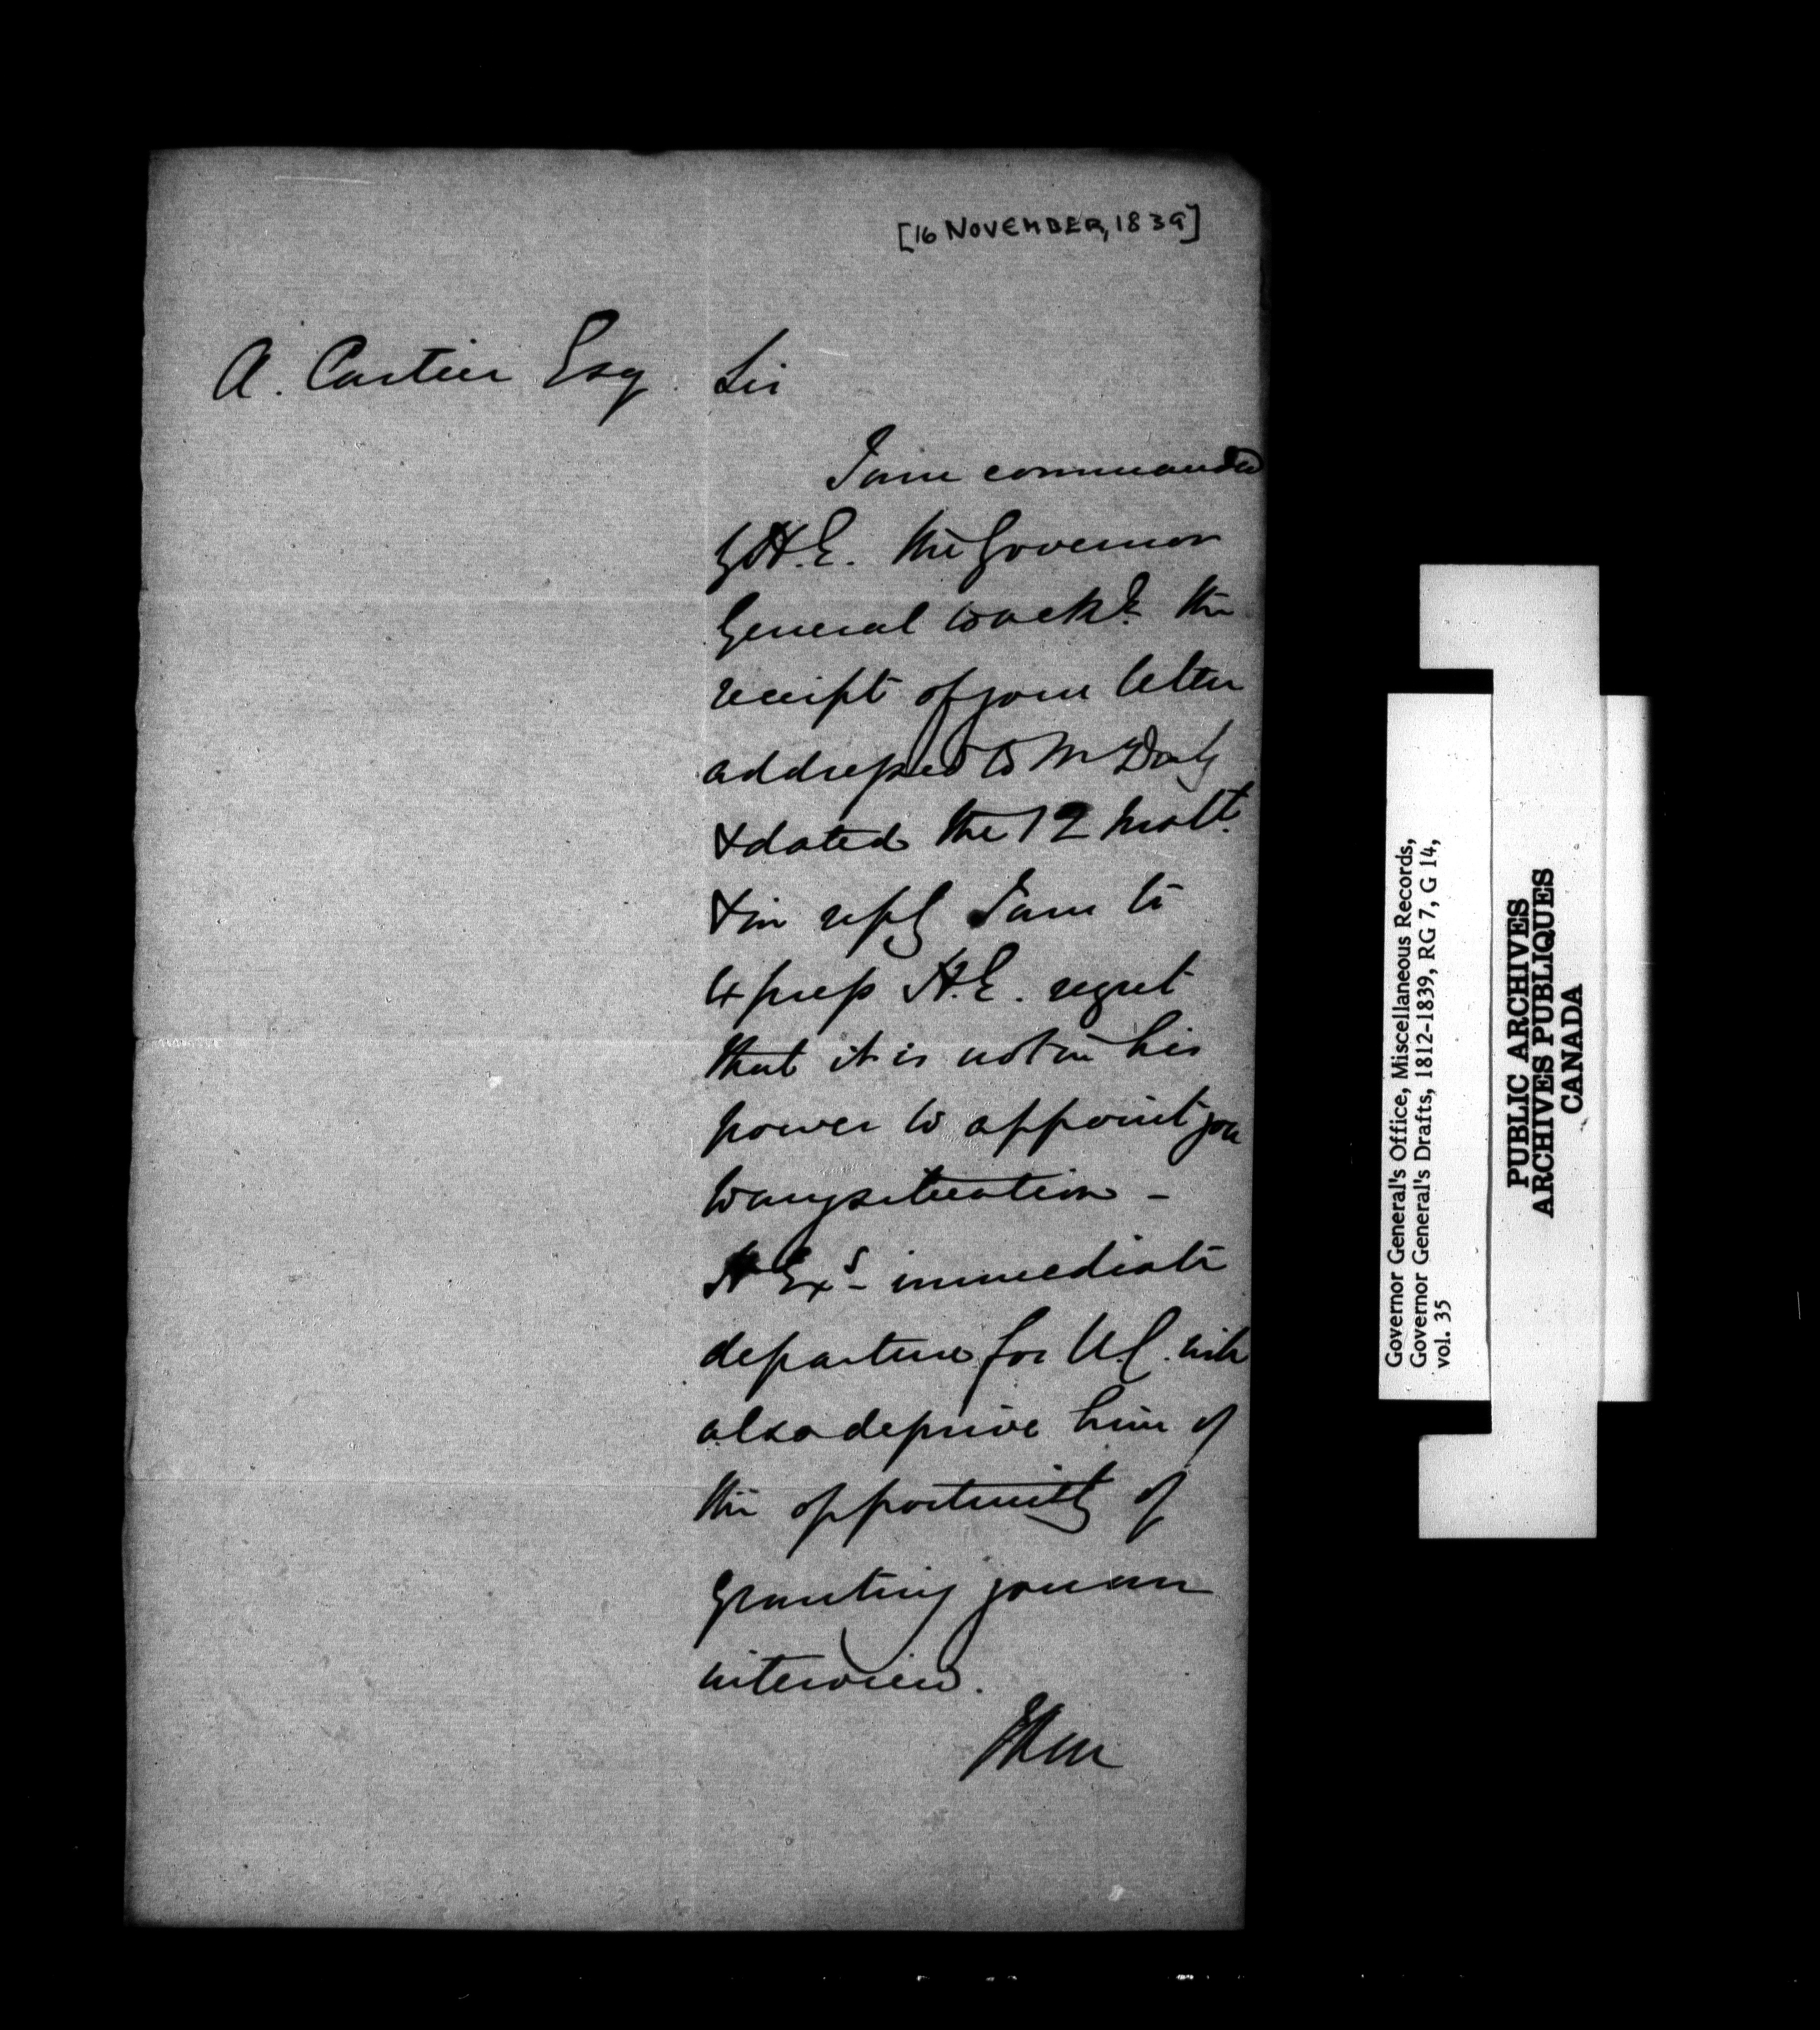 [16 NOVEMBER, 1839]
A. Cartier Esq.
Sir
I am commanded
by H.E. the Governor
General to ackn.^e the
receipt of your letter
addressed to Mr Daly
& dated the 12 Inst^t.
& in reply I am to
express H.E. regret
that it is not in his
power to appoint you
to any situation –
H Ex^s – immediate
departure for U.C. will
also deprive him of
the opportunity of
granting you an
interview.
Governor General's Office, Miscellaneous Records,
Governor General's Drafts, 1812-1839, RG 7, G 14,
vol. 35
PUBLIC ARCHIVES
ARCHIVES PUBLIQUES
CANADA